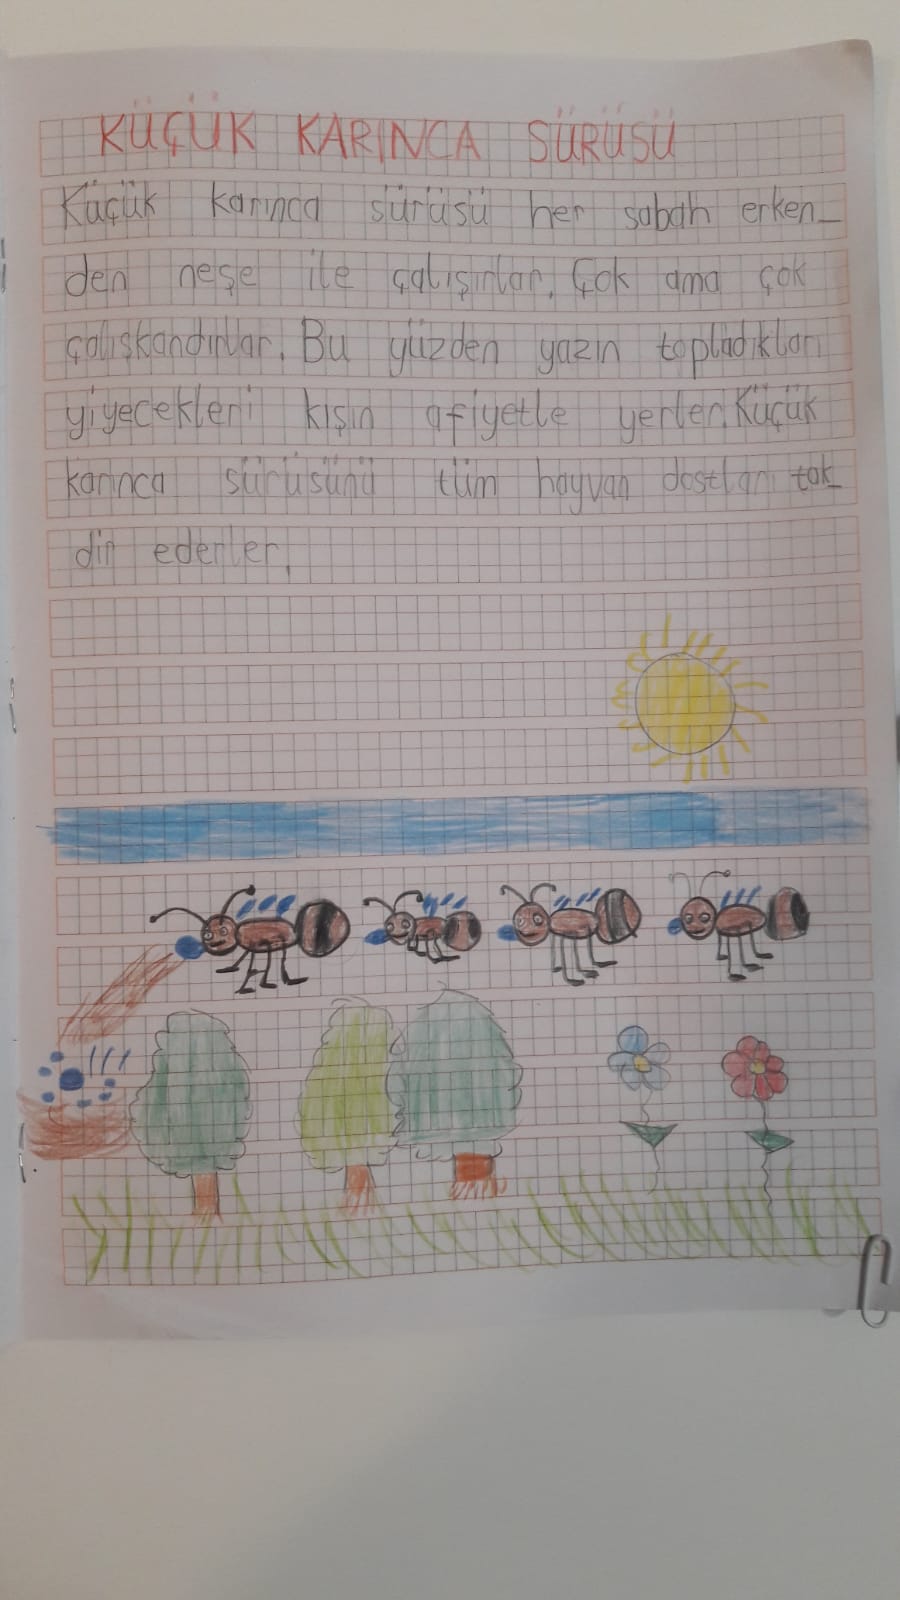 KÜÇÜK KARINCA SÜRÜSÜ
Küçük karınca sürüsü her sabah erken_
den neşe ile çalışırlar. Çok ama çok
çalışkandırlar. Bu yüzden yazın topladıkları
yiyecekleri kışın afiyetle yerler. Küçük
karınca sürüsünü tüm hayvan dostları tak_
dir ederler.